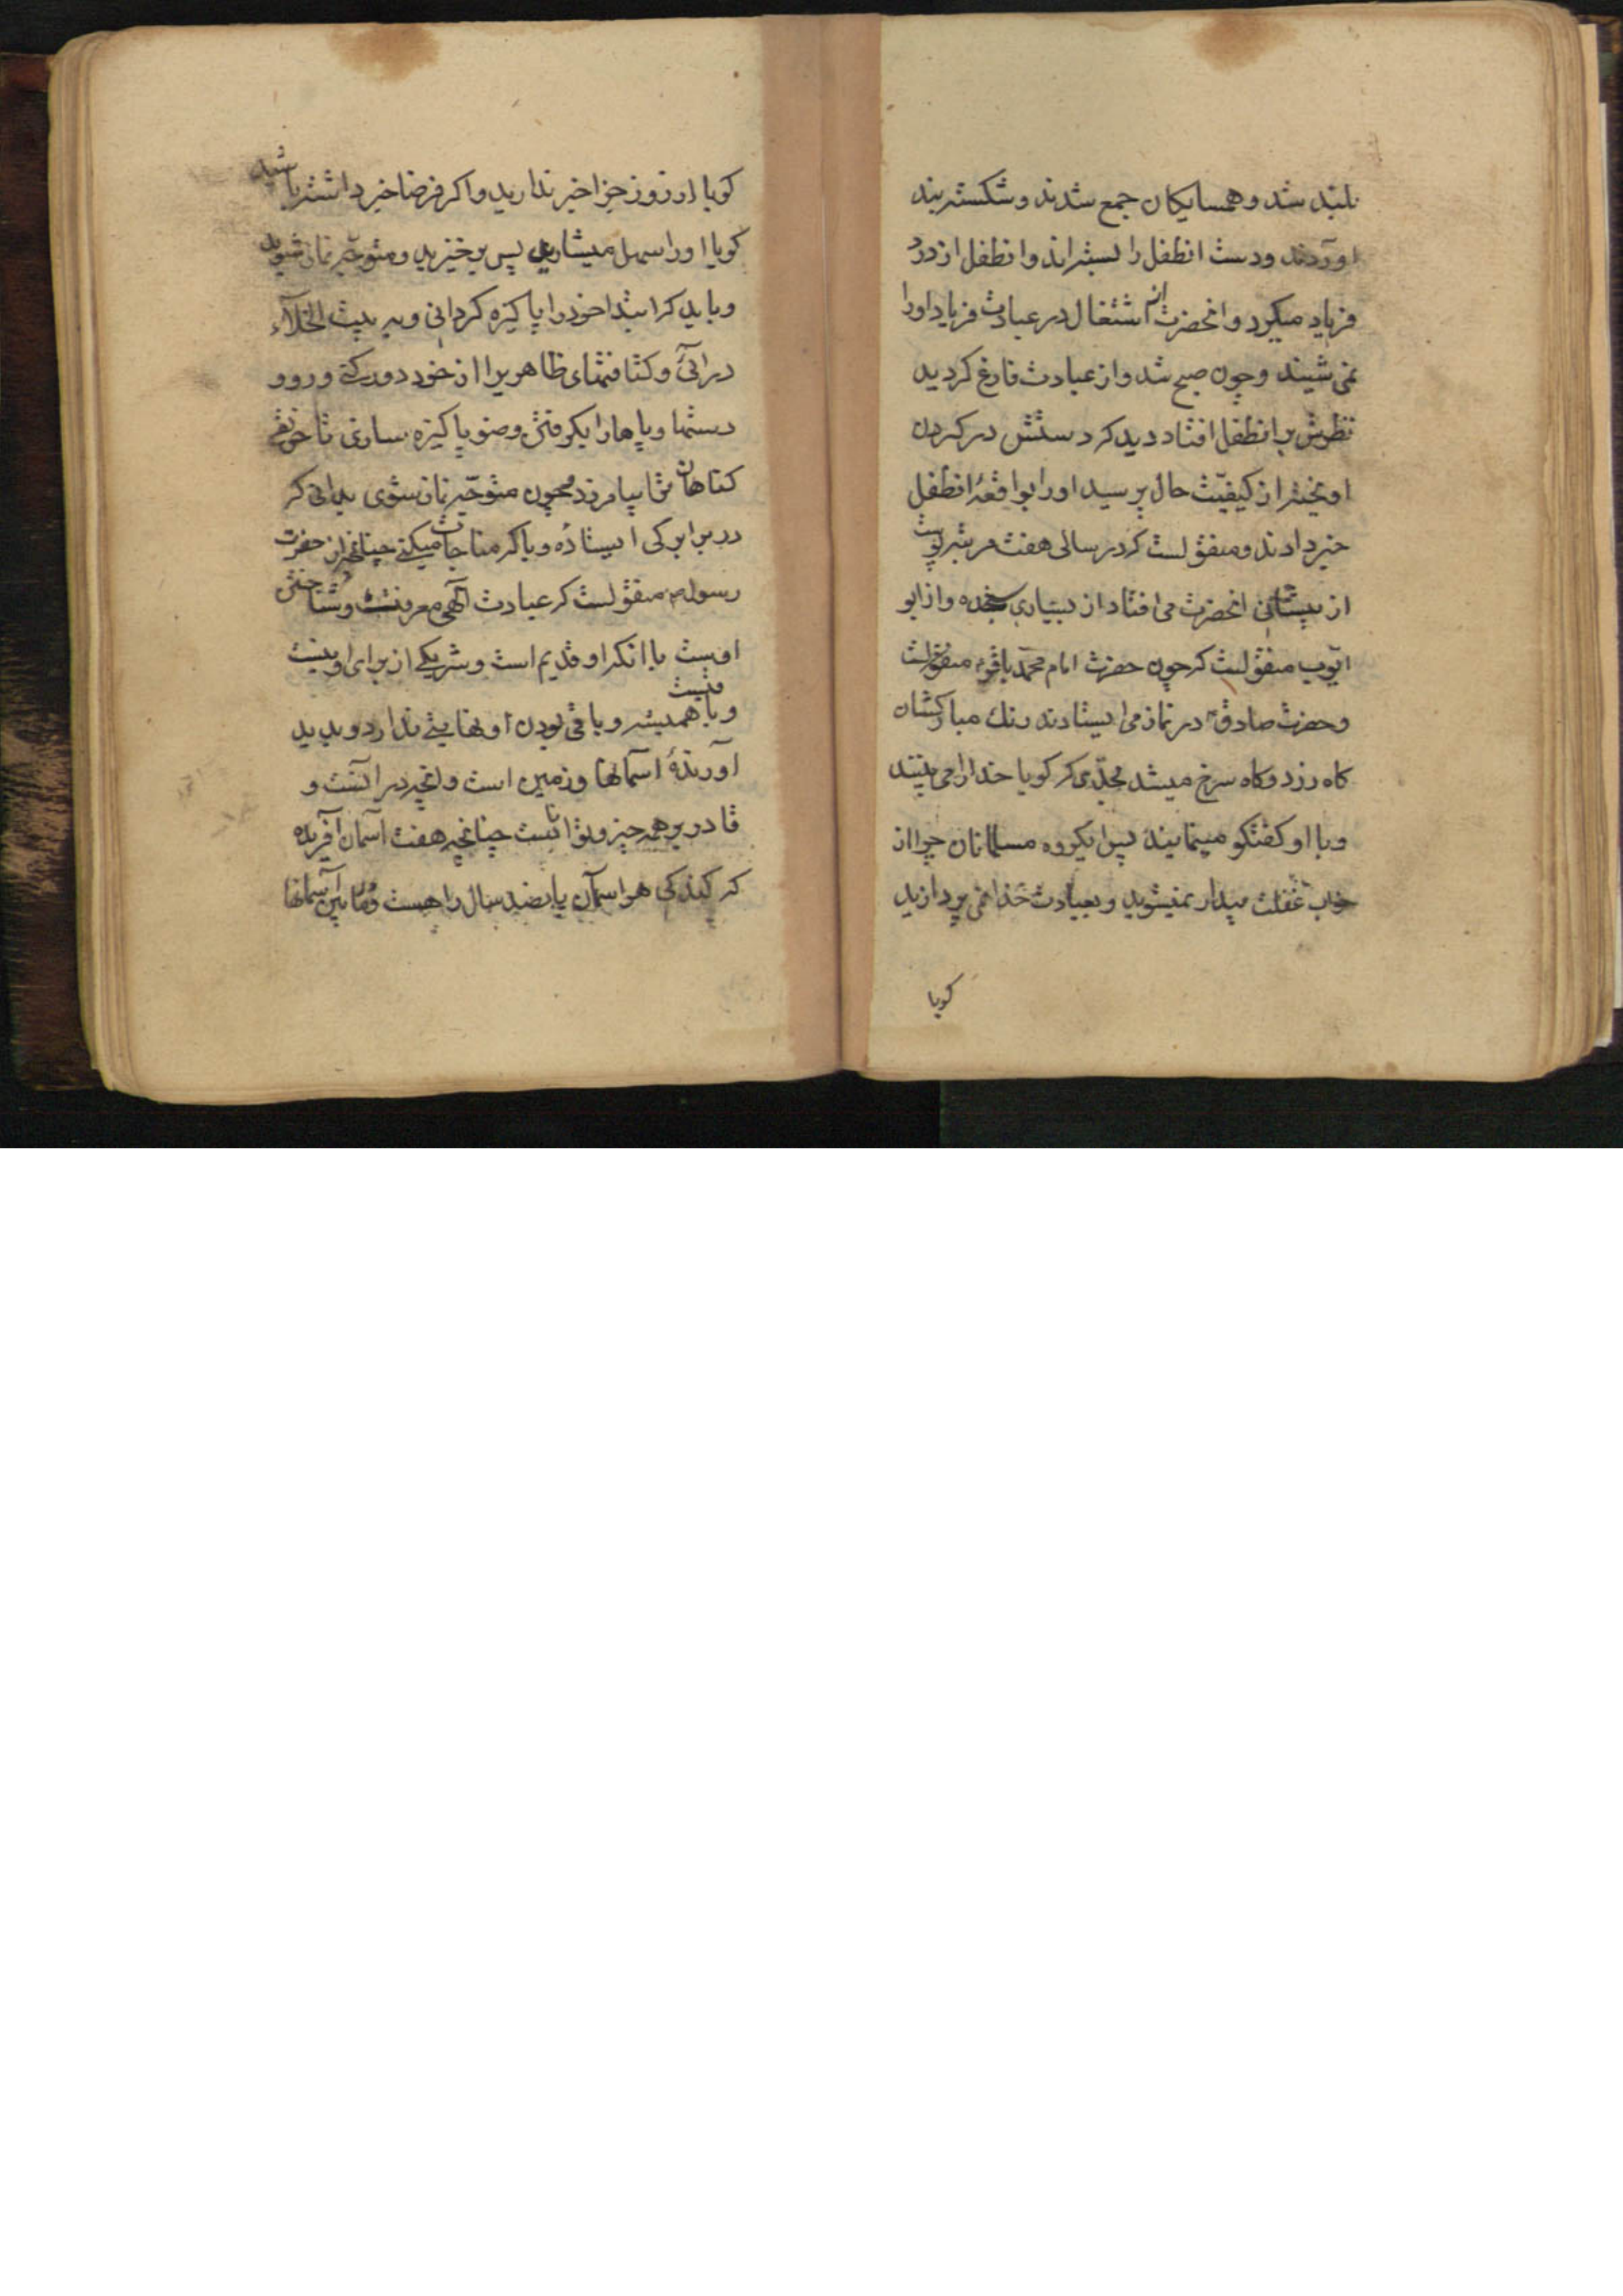 بلند شد و همسایکان جمع شدند و شکسته بند
اوردند و دست انطفل را بستند و انطفل از درد
فریاد میکرد و انحضرت از اشتغال در عبادت فریاد او را
نمی شنید و چون صبح شد و از عبادت فارغ کردید
نظرش بر انطفل افتاد دید که دستش در کردن
اویخته از کیفیت حال پرسید او را بواقعهٔ انطفل
خبر دادند و منقولست که در سالی هفت مرتبه پوست
از پیشانی انحضرت می افتاد از بسیاری سجده و از ابو
ایوب منقولست که چون حضرت امام محمد باقر
و حضرت صادق در نماز می ایستادند رنک مبارکشان
کاه زرد و کاه سرخ میشد بحدی که کویا خدا را می بینند
و با او کفتکو مینمایند پس ایکروه مسلمانان چرا از
خواب غفلت بیدار نمیشوید و بعبادت خدا نمی پردازید
کویا
کویا از روز جزا خبر ندارید و اکر فرضا خبر داشته باشید
کویا او را سهل میشمارید پس برخیزید و متوجه نماز شوید
و باید که ابتدا خود را پاکیزه کردانی و به بیت الخلاء
در ائی و کثافتهای ظاهری را از خود دور کنی و رو و
دستها و پاها را بکرفتن وضو پاکیزه سازی تا حق تعالی
کناهان ترا بیامرزد و چون متوجه نماز شوی بدانی که
در برابر کی ایستاده و با که مناجات میکنی چنانچه از حضرت
رسول منقولست که عبادت الهی معرفت و شناختن
اوست با انکه او قدیم است و شریکی از برای او نیست
و با همیشه و باقی بودن او نهایتی ندارد و پدید
اورندهٔ اسمانها و زمین است و انچه در انست و
قادر بر همه چیز و تواناست چنانچه هفت آسمان آفریده
که کندکی هر اسمان پانصد سال راهست و مابین آسمانها